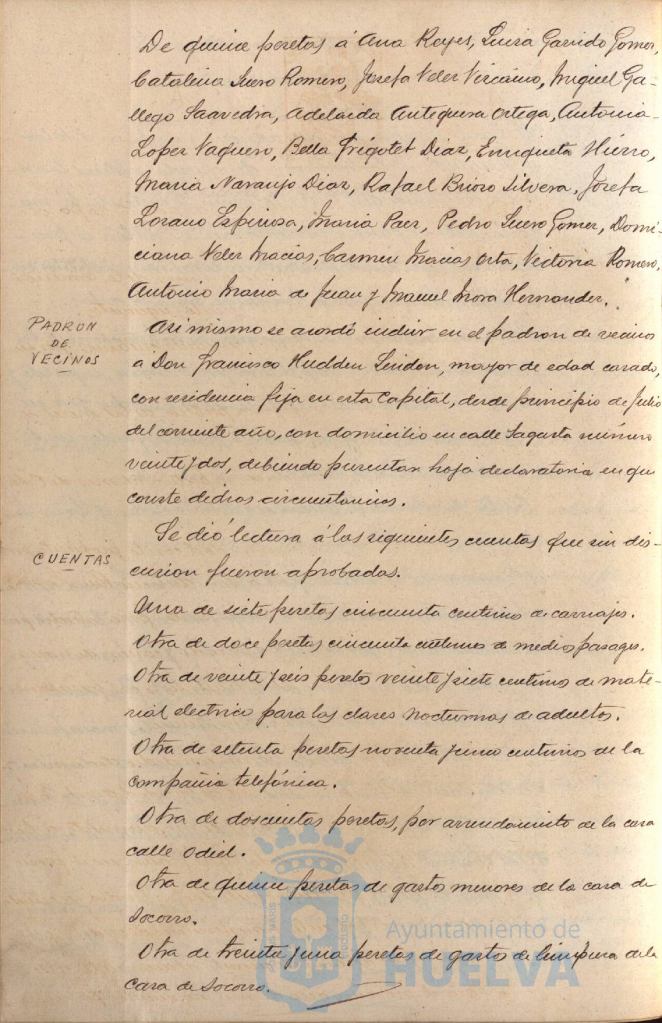 De quince pesetas á Ana Reyes, Luisa Garrido Gomez,
Catalina Suero Romero, Josefa Velez Vizcaino, Miguel Ga-
llego Saavedra, Adelaida Antequera Ortega, Antonia
Lopez Vaquero, Bella Trigotet Diaz, Enriqueta Hierro,
Maria Naranjo Diaz, Rafael Brioso Silvera, Josefa
Lozano Espinosa, Maria Paez, Pedro Suero Gomez, Domi-
ciana Velez Macias, Carmen Macias Orta, Victoria Romero,
Antonio Maria de Juan y Manuel Mora Hernandez.
PADRON
DE
VECINOS
Asimismo se acordó incluir en el padron de vecinos
a Don Francisco Hudden, mayor de edad casado,
con residencia fija en esta Capital, desde principio de Julio
del corriente año, con domicilio en calle Sagasta número
veinte y dos, debiendo presentar hoja declaratoria en que
conste dichas circunstancias.
CUENTAS
Se dió lectura á las siguientes cuentas que sin dis-
cusion fueron aprobadas.
Una de siete pesetas cincuenta centimos de carruajes.
Otra de doce pesetas cincuenta centimos de medios pasages.
Otra de veinte y seis pesetas veinte y siete centimos de mate-
rial electrico para las clases nocturnas de adultos.
Otra de setenta pesetas noventa y cinco centimos de la
compañia telefónica.
Otra de doscientas pesetas, por arrendamiento de la casa
calle Odiel.
Otra de quince pesetas de gastos menores de la casa de
Socorro.
Otra de treinta y una pesetas de gastos de limpieza de la
casa de Socorro.
Ayuntamiento de
HUELVA